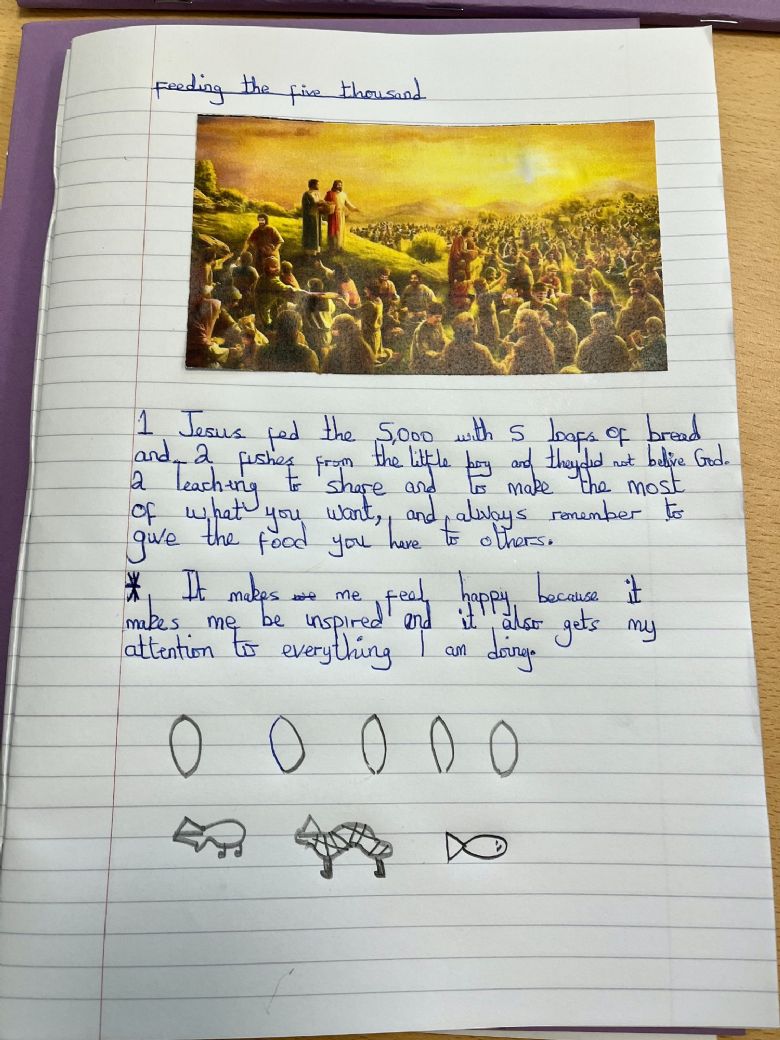 Feeding the five thousand
1 Jesus fed the 5,000 with 5 loafs of bread
and 2 fishes from the little boy and they did not belive God.
2 teaching to share and to make the most
of what you want, and always remember to
give the food you have to others.
* It makes me feel happy because it
makes me be inspired and it also gets my
attention to everything I am doing.